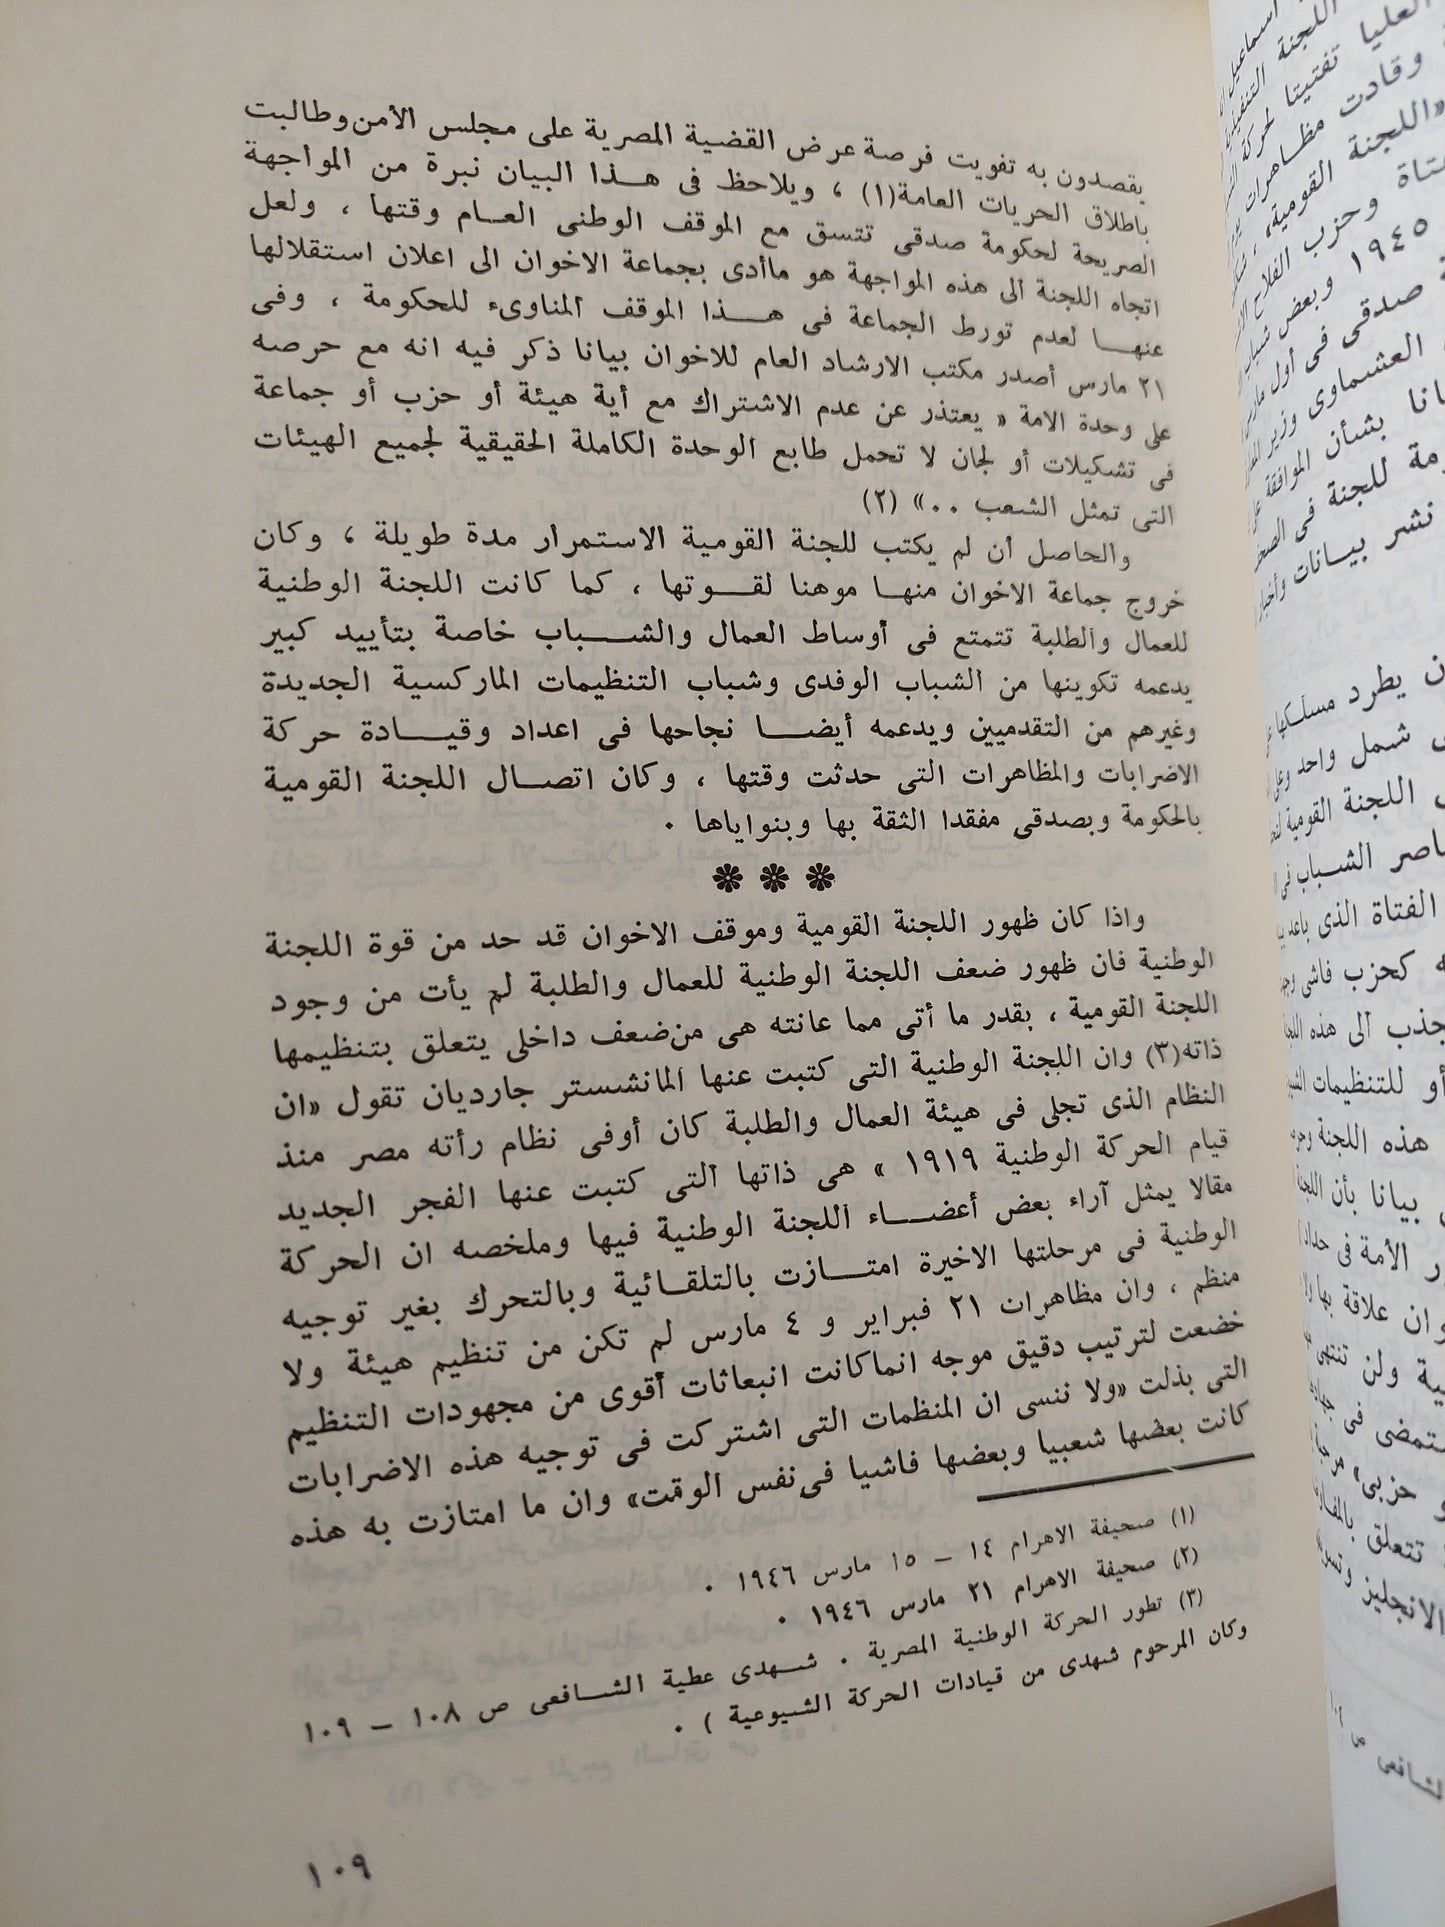 يقصدون به تفويت فرصة عرض القضية المصرية على مجلس الأمن وطالبت
باطلاق الحريات العامة(١) ، ويلاحظ فى هـذا البيان نبرة من المواجهة
الصريحة لحكومة صدقى تتسق مع الموقف الوطنى العـام وقتها ، ولعل
اتجاه اللجنة الى هذه المواجهة هو ماأدى بجماعة الاخوان الى اعلان استقلالها
عنهـا لعدم تورط الجماعة فى هـذا الموقف المناوىء للحكومة ، وفى
٢١ مارس أصدر مكتب الارشاد العام للاخوان بيانا ذكر فيه انه مع حرصه
على وحدة الامة « يعتذر عن عدم الاشتراك مع أية هيئة أو حزب أو جماعة
فى تشكيلات أو لجان لا تحمل طابع الوحدة الكاملة الحقيقية لجميع الهيئات
التى تمثل الشعب ..» (٢)
والحاصل أن لم يكتب للجنة القومية الاستمرار مدة طويلة ، وكان
خروج جماعة الاخوان منهـا موهنا لقـوتها ، كما كانت اللجنة الوطنية
للعمال والطلبة تتمتع فى أوساط العمال والشـباب خاصة بتأييد كبير
يدعمه تكوينها من الشباب الوفدى وشباب التنظيمات الماركسية الجديدة
وغيرهم من التقدميين ويدعمه أيضـا نجاحها فى اعداد وقيـادة حركة
الاضرابات والمظاهرات التى حدثت وقتها ، وكان اتصـال اللجنة القومية
بالحكومة وبصدقى مفقدا الثقة بها وبنواياها .
❊ ❊ ❊
واذا كان ظهور اللجنة القومية وموقف الاخوان قد حد من قوة اللجنة
الوطنية فان ظهور ضعف اللجنة الوطنية للعمال والطلبة لم يأت من وجود
اللجنة القومية ، بقدر ما أتى مما عانته هى من ضعف داخلى يتعلق بتنظيمها
ذاته(٣) وان اللجنة الوطنية التى كتبت عنها المانشستر جارديان تقول «ان
النظام الذى تجلى فى هيئة العمال والطلبة كان أوفى نظام رأته مصر منذ
قيام الحركة الوطنية ١٩١٩ » هى ذاتها التى كتبت عنها الفجر الجديد
مقالا يمثل آراء بعض أعضـاء اللجنة الوطنية فيها وملخصه ان الحركة
الوطنية فى مرحلتها الاخيرة امتـازت بالتلقـائية وبالتحرك بغير توجيه
منظم ، وان مظاهرات ٢١ فبراير و ٤ مارس لم تكن من تنظيم هيئة ولا
خضعت لترتيب دقيق موجه انماكانت انبعاثات أقوى من مجهودات التنظيم
التى بذلت «ولا ننسى ان المنظمات التى اشتركت فى توجيه هذه الاضرابات
كانت بعضها شعبيا وبعضها فاشيا فى نفس الوقت» وان ما امتازت به هذه
(١) صحيفة الاهرام ١٤ – ١٥ مارس ١٩٤٦ .
(٢) صحيفة الاهرام ٢١ مارس ١٩٤٦ .
(٣) تطور الحركة الوطنية المصرية . شـهدى عطية الشـافعى ص ١٠٨ – ١٠٩
وكان المرحوم شهدى من قيادات الحركة الشيوعية ) .
١٠٩